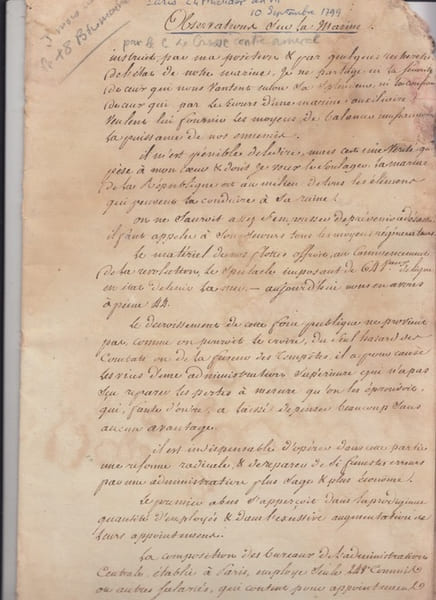 Paris 24 fructidor an VII
10 Septembre 1799
18 Brumaire
Observations Sur la Marine.
par le C. de Crosse contre amiral
instruit par ma position & par quelques recherches
de l'état de notre marine, Je ne partage ni la
de ceux qui nous Vantent encore Sa Splendeur, ni la confiance
de ceux qui par le Secours d'une marine auxiliaire
veulent lui fournir les moyens de balancer
la puissance de nos ennemis.
il m'est pénible de le dire, mais c'est une Verité qui
pèse à mon Cœur & dont Je veux le Soulager la marine
de la République est au milieu de tous les élémens
qui peuvent la conduire à Sa ruine!
on ne Sauroit assez S'empresser de prévenir
il faut appeler à Son Secours tous les moyens régénérateurs.
Le matériel de nos flottes offroit, au Commencement
de la revolution, le Spectacle imposant de 64 Vaux de ligne
en état de tenir la mer, — aujourd'hui nous en avons
à peine 44.
Le décroissement de cette force publique ne provient
pas comme on pourroit le croire, du Seul hazard des
Combats ou de la fureur des Tempêtes, il a pour cause
les vices d'une administration Supérieure qui n'a pas
Sçu reparer les pertes à mesure qu'on les éprouvoit,
qui, faute d'ordre, a laissé depenser beaucoup Sans
aucun avantage.
il est indispensable d'opérer dans cette partie
une reforme radicale, & de reparer de Si funestes erreurs
par une administration plus Sage & plus économe!
Le premier abus S'apperçoit dans la prodigieuse
quantité d'employés & dans l'excessive augmentation de
leurs appointemens.
La composition des bureaux de l'administration
Centrale, établie à Paris, employe Seule 248 Commis
ou autres Salariés, qui coutent pour appointemens